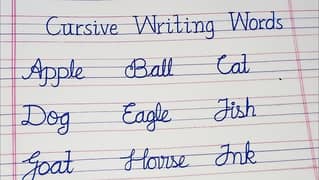 Cursive Writing Words
Apple Ball Cat
Dog Eagle Fish
Goat House Ink